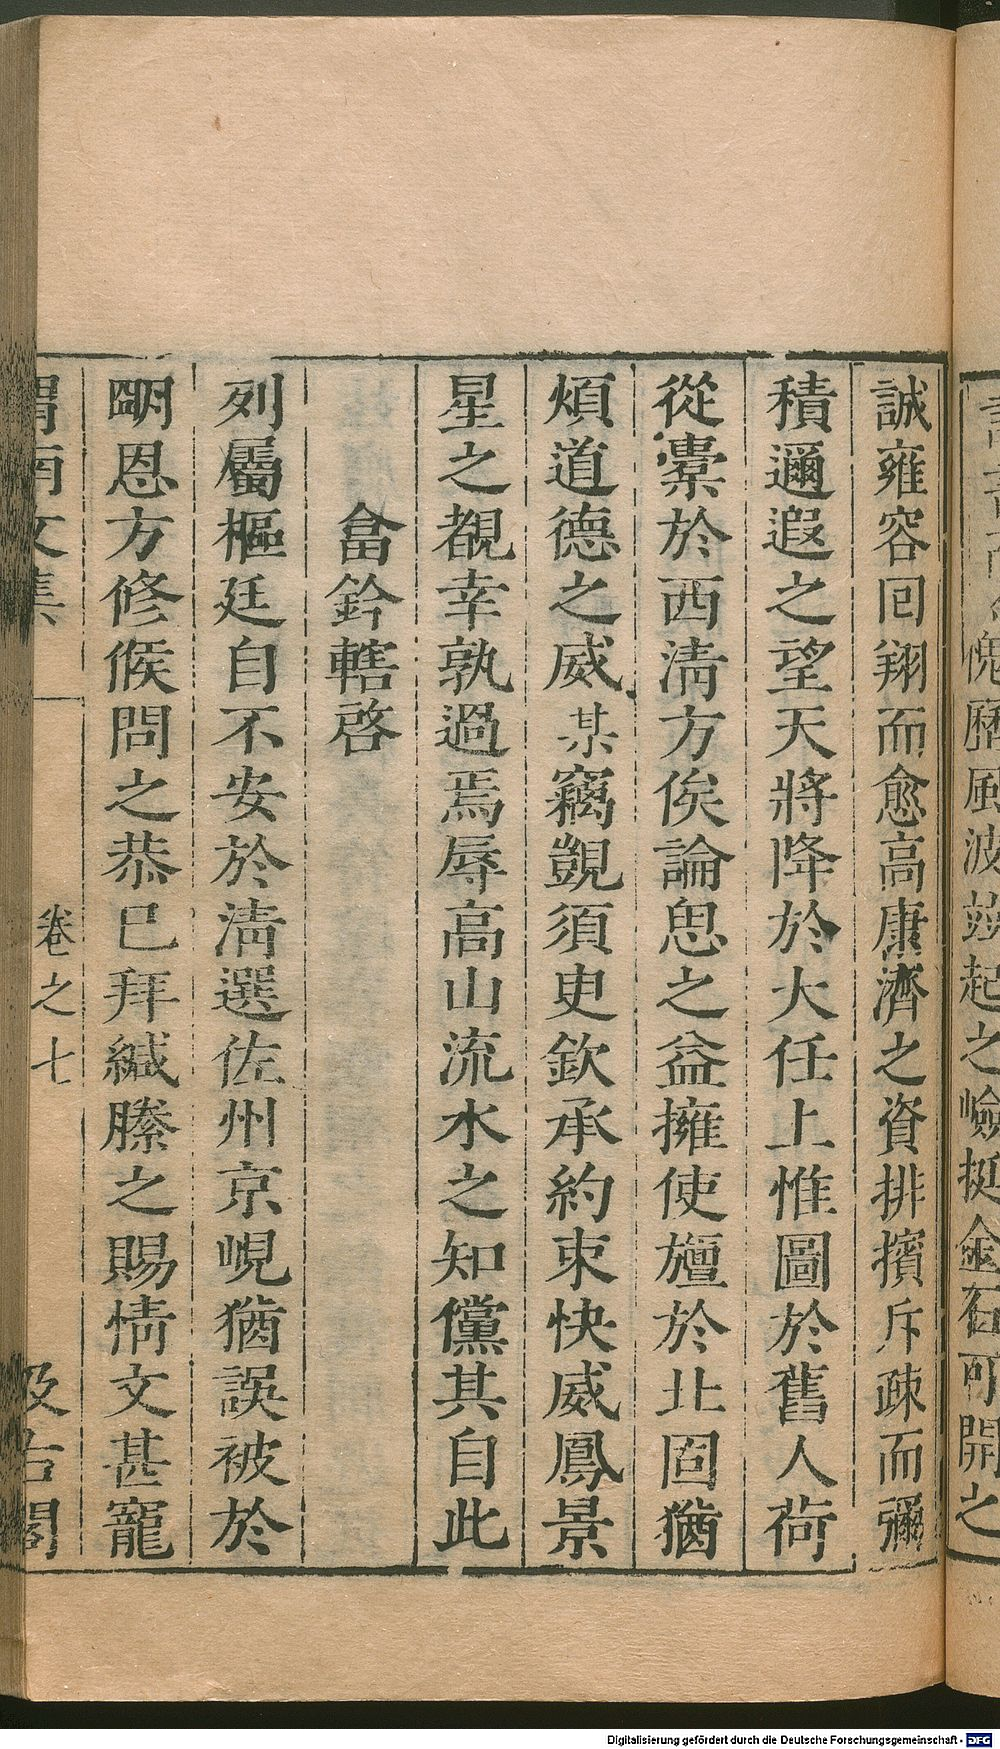 愧歷風波竝起之嶮挺金石可開之
誠雍容回翔而愈高康濟之資排擯斥疎而彌
積邇遐之望天將降於大任上惟圖於舊人荷
從橐於西淸方俟論思之益擁使旜於北固猶
煩道德之威某竊覬須臾欽承約束快威鳳景
星之覩幸孰過焉辱高山流水之知儻其自此
畣鈐轄啓
列屬樞廷自不安於淸選佐州京峴猶誤被於
朙恩方修候問之恭已拜緘縢之賜情文甚寵
渭南文集 卷之七 汲古閣
Digitalisierung gefördert durch die Deutsche Forschungsgemeinschaft - DFG